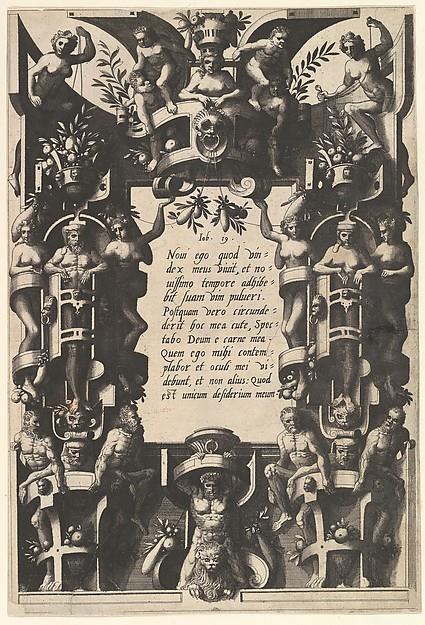 Iob · 19 ·
Novi ego quod vin=
dex meus vivit, et no=
uissimo tempore adhibe=
bit suam vim pulueri.
Postquam vero circunde=
derit hoc mea cute, Spec=
tabo Deum e carne mea.
Quem ego mihi contem=
plabor et oculi mei vi=
debunt, et non alius: Quod
est unicum desiderium meum.